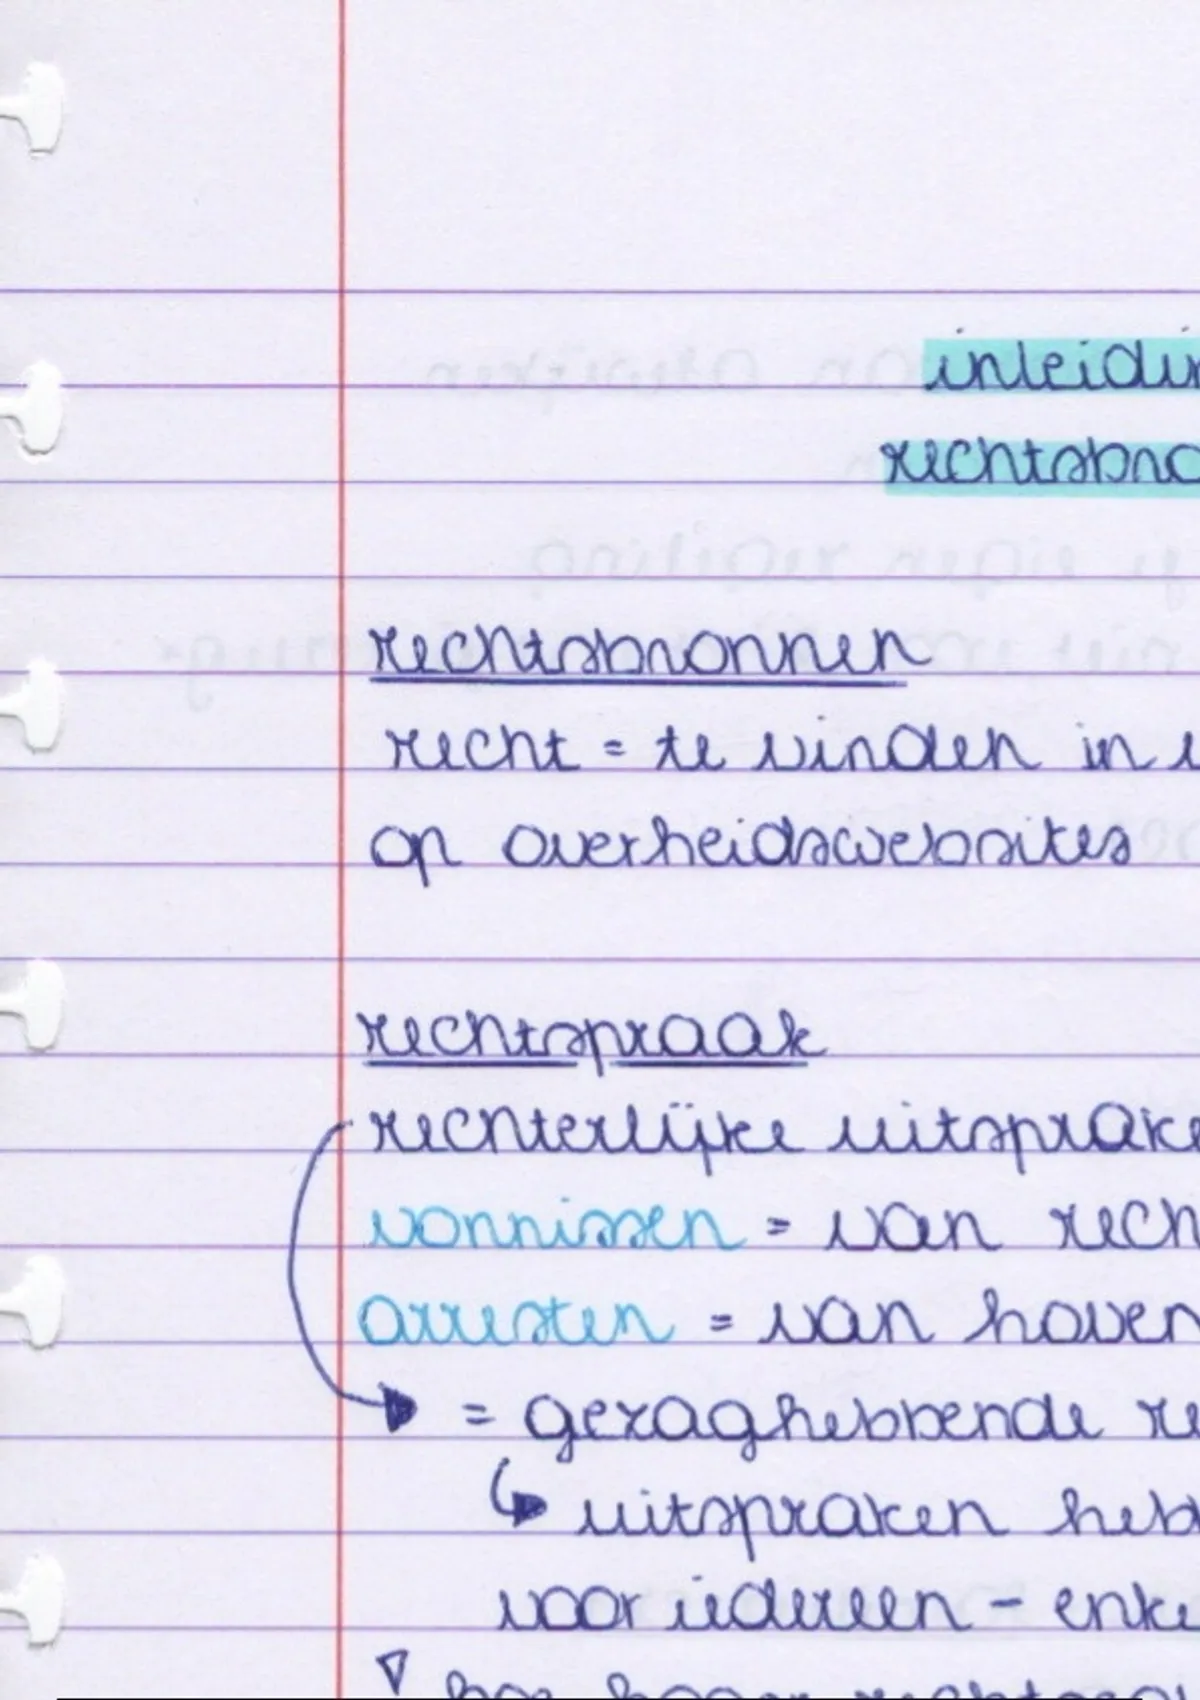 inleidin
rechtsbro
rechtsbronnen
recht = te vinden in
op overheidswebsites
rechtspraak
rechterlijke uitsprake
vonnissen = van rech
arresten = van hoven
= gezaghebbende re
↳ uitspraken heb
voor iedereen - enke
hoe hoger rechtsco